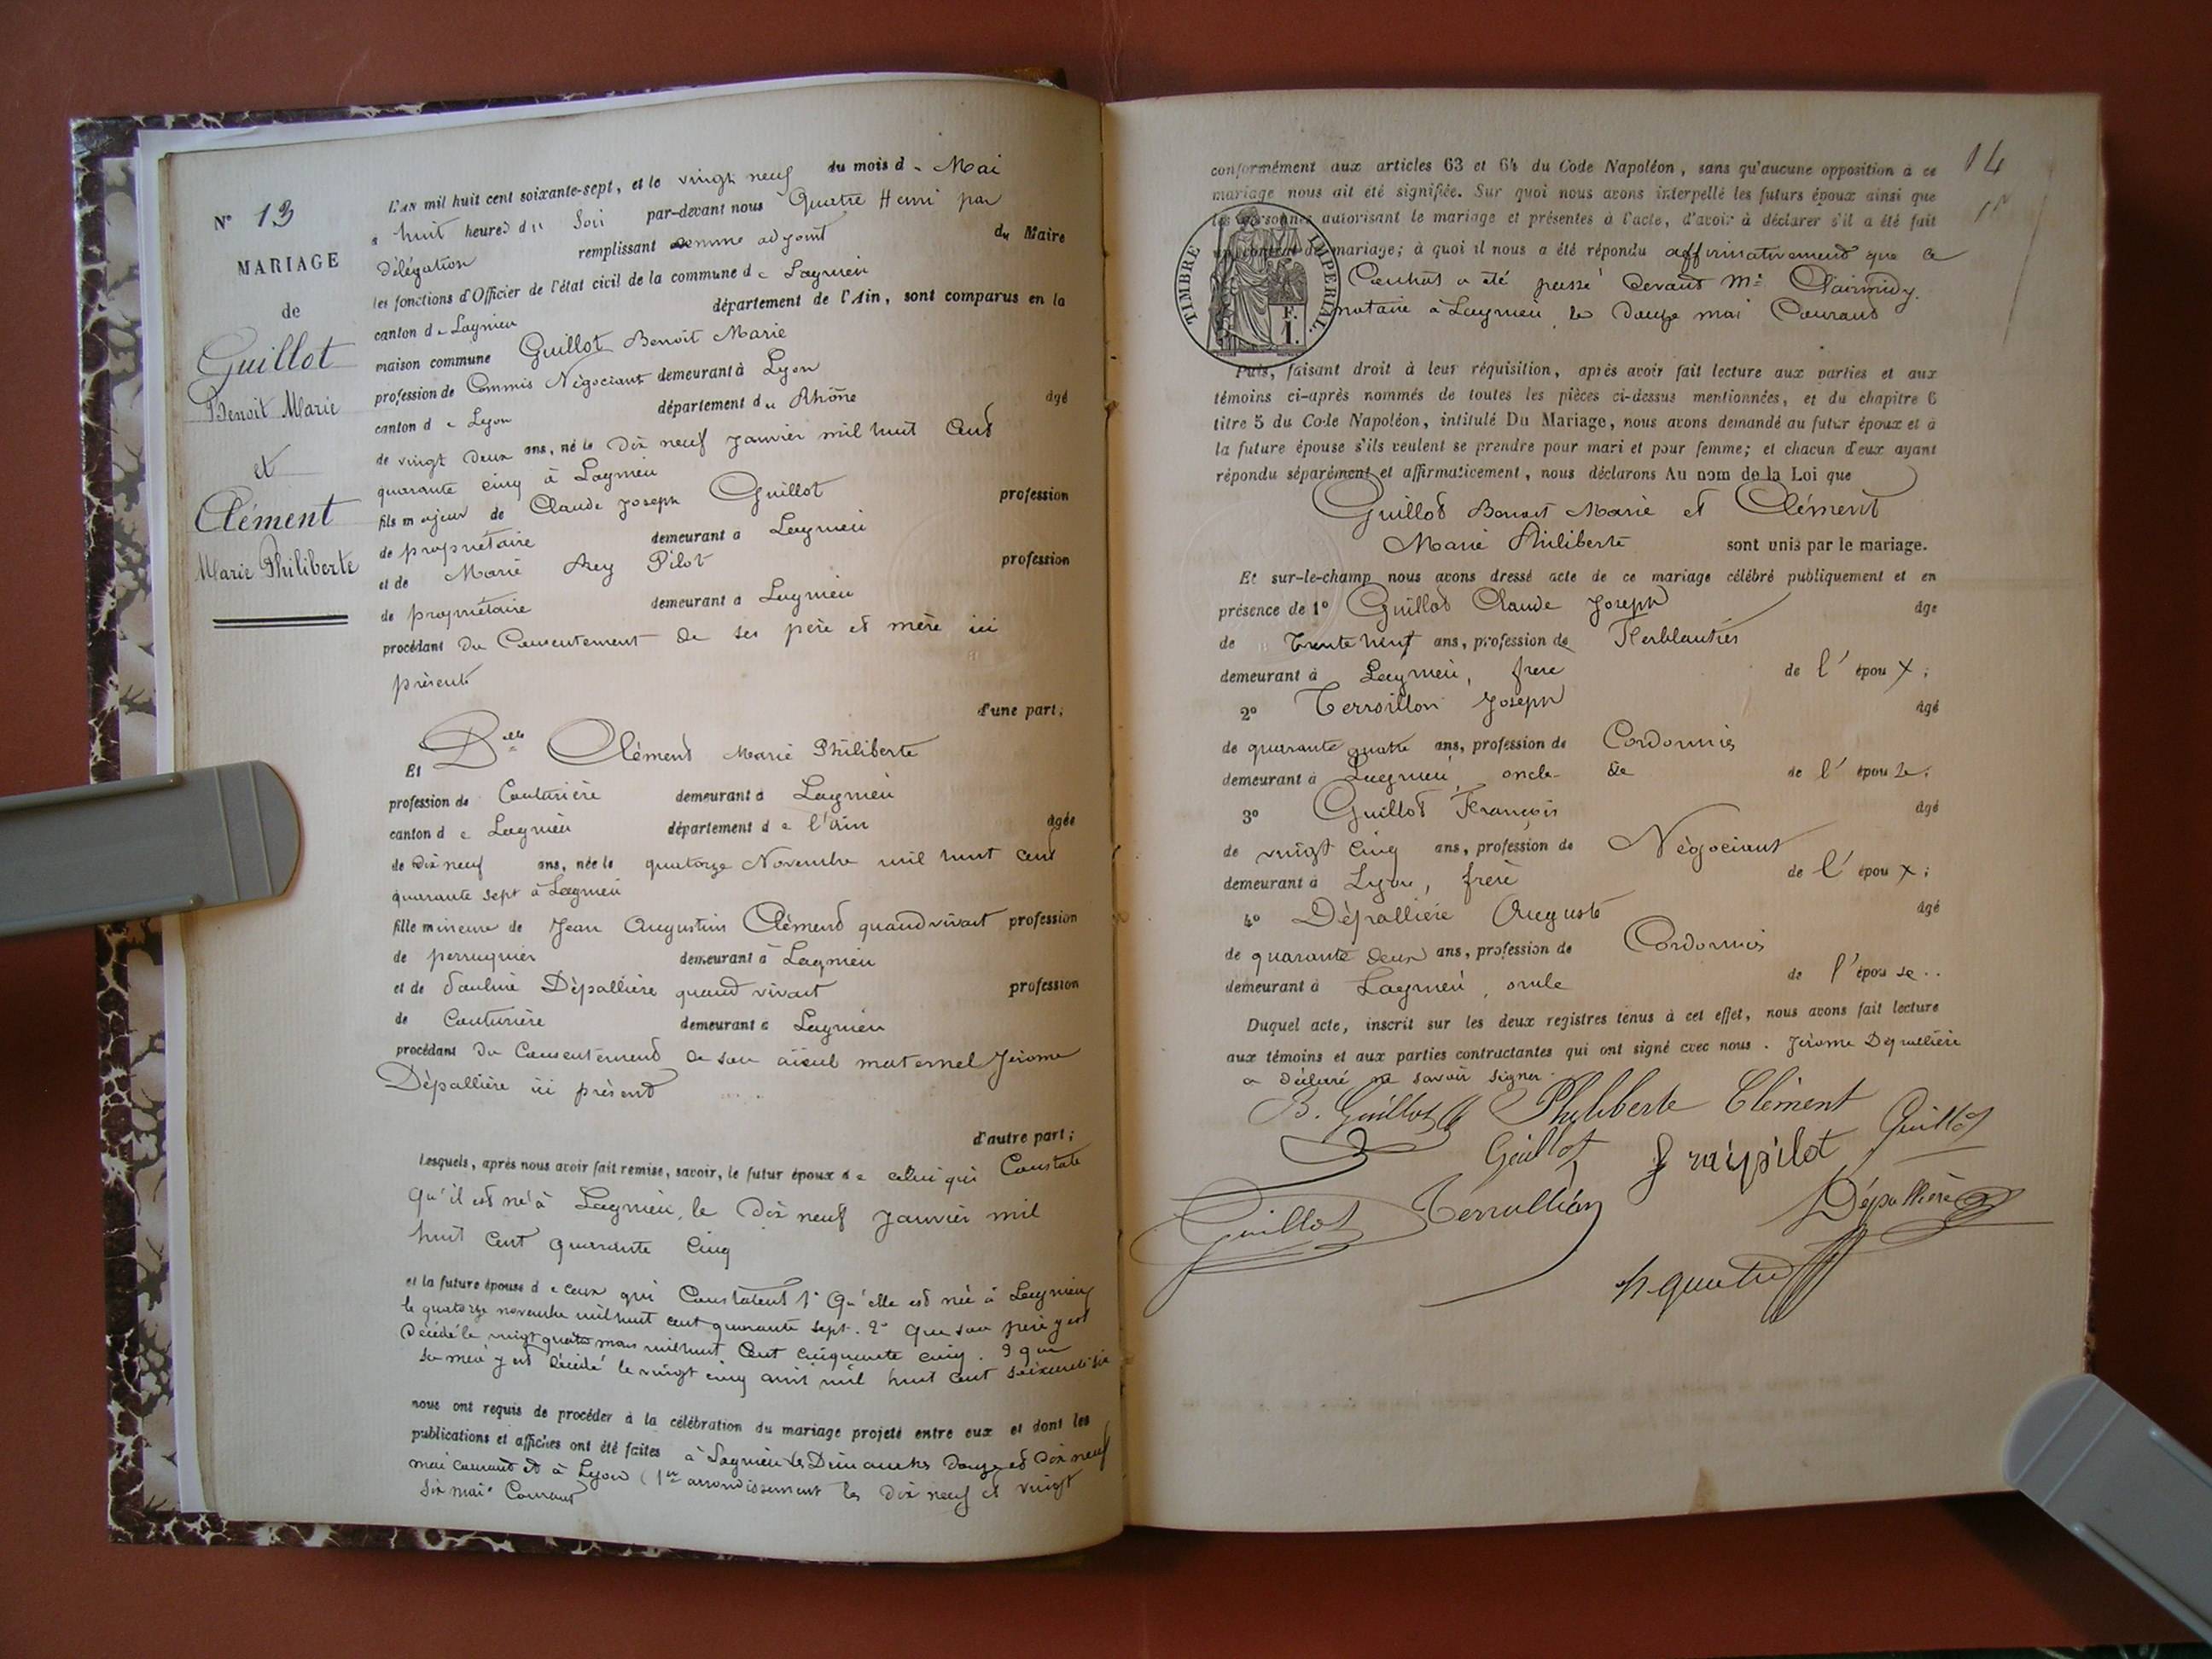 N° 13
MARIAGE
de
Guillot
Benoit Marie
et
Clément
Marie Philiberte
L'AN mil huit cent soixante-sept, et le vingt neuf du mois de Mai
à huit heures du Soir par-devant nous Quatre Henri par
Délégation remplissant comme adjoint du Maire
les fonctions d'Officier de l'état civil de la commune de Lagnieu
canton de Lagnieu département de l'Ain, sont comparus en la
maison commune Guillot Benoit Marie
profession de Commis Négociant demeurant à Lyon
canton de Lyon département du Rhône âgé
de vingt deux ans, né le dix neuf Janvier mil huit Cent
quarante cinq à Lagnieu
fils majeur de Claude Joseph Guillot profession
de propriétaire demeurant à Lagnieu
et de Marie Rey Pilot profession
de propriétaire demeurant à Lagnieu
procédant du Consentement de ses père et mère ici
présents
d'une part;
Et Delle Clément Marie Philiberte
profession de Couturière demeurant à Lagnieu
canton de Lagnieu département de l'ain âgée
de dix neuf ans, née le quatorze Novembre mil huit cent
quarante sept à Lagnieu
fille mineure de Jean Augustin Clément quand vivait profession
de perruquier demeurant à Lagnieu
et de Pauline Dépallière quand vivait profession
de Couturière demeurant à Lagnieu
procédant du Consentement de son aïeul maternel Jérome
Dépallière ici présent
d'autre part;
Lesquels, après nous avoir fait remise, savoir, le futur époux de celui qui Constate
Qu'il est né à Lagnieu, le dix neuf Janvier mil
huit Cent quarante Cinq
et la future épouse de ceux qui Constatent 1° Qu'elle est née à Lagnieu
le quatorze novembre mil huit cent quarante sept. 2° Que son père y est
Décédé le vingt quatre mars mil huit Cent cinquante cinq. 3 que
sa mère y est décédé le vingt cinq avril mil huit cent soixante six
nous ont requis de procéder à la célébration du mariage projeté entre eux et dont les
publications et affiches ont été faites à Lagnieu les Dimanches douze et dix neuf
mai Courant et à Lyon (1er arrondissement les dix neuf et vingt
six mai Courant
14
conformément aux articles 63 et 64 du Code Napoléon, sans qu'aucune opposition à ce
mariage nous ait été signifiée. Sur quoi nous avons interpellé les futurs époux ainsi que
les personnes autorisant le mariage et présentes à l'acte, d'avoir à déclarer s'il a été fait
un contrat de mariage; à quoi il nous a été répondu affirmativement que ce
Contrat a été passé devant Me
notaire à Lagnieu, le Douze mai Courant
TIMBRE IMPERIAL
F.
1.
Puis, faisant droit à leur réquisition, après avoir fait lecture aux parties et aux
témoins ci-après nommés de toutes les pièces ci-dessus mentionnées, et du chapitre 6
titre 5 du Code Napoléon, intitulé Du Mariage, nous avons demandé au futur époux et à
la future épouse s'ils veulent se prendre pour mari et pour femme; et chacun d'eux ayant
répondu séparément et affirmativement, nous déclarons Au nom de la Loi que
Guillot Benoit Marie et Clément
Marie Philiberte sont unis par le mariage.
Et sur-le-champ nous avons dressé acte de ce mariage célébré publiquement et en
présence de 1° Guillot Claude Joseph âgé
de trente neuf ans, profession de Ferblantier
demeurant à Lagnieu, frère de l'époux;
2° Terroillon Joseph âgé
de quarante quatre ans, profession de Cordonnier
demeurant à Lagnieu oncle de de l'épouse;
3° Guillot François âgé
de vingt cinq ans, profession de Négociant
demeurant à Lyon, frère de l'époux;
4° Dépallière Auguste âgé
de quarante deux ans, profession de Cordonnier
demeurant à Lagnieu, oncle de l'épouse..
Duquel acte, inscrit sur les deux registres tenus à cet effet, nous avons fait lecture
aux témoins et aux parties contractantes qui ont signé avec nous. Jérome Dépallière
a déclaré ne savoir signer.
B. Guillot Philiberte Clément
Guillot f raipilot Guillot
Guillot Terroillon Dépallière
h. quatre